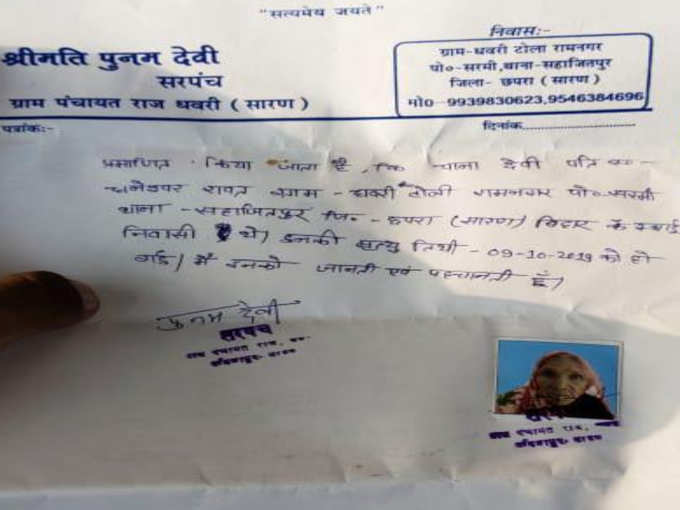 "सत्यमेव जयते"
श्रीमति पुनम देवी
सरपंच
ग्राम पंचायत राज धवरी ( सारण )
निवासः-
ग्राम-धवरी टोला रामनगर
पो०-सरमी,थाना-सहाजितपुर
जिला- छपरा ( सारण )
मो० 9939830623,9546384696
पत्रांकः-
दिनांक
प्रमाणित किया जाता है कि चाना देवी पति स्व०-
रावत ग्राम - धवरी टोली रामनगर पो०-सरमी
थाना - सहाजितपुर जि० - छपरा (सारण) बिहार के स्थाई
निवासी थे। इनकी मृत्यु तिथी - 09-10-2019 को हो
गई। मैं इनको जानती एवं पहचानती हूँ।
पुनम देवी
सरपंच
ग्राम पंचायत राज,
ग्राम पंचायत राज,